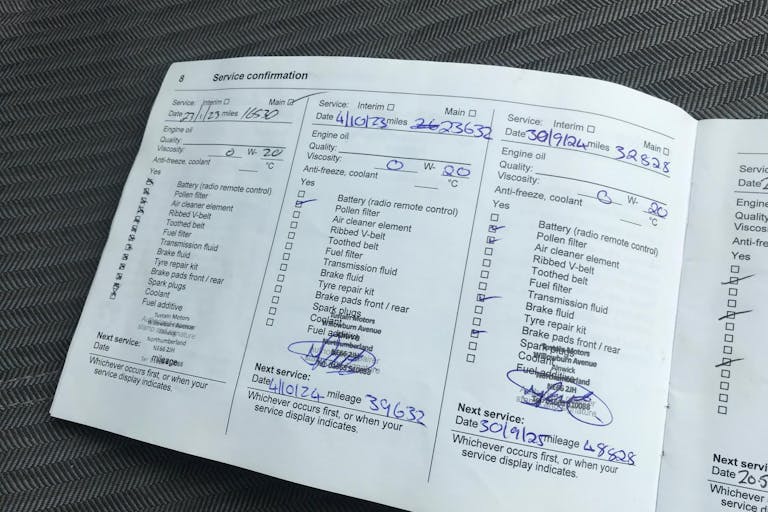 8 Service confirmation
Service: Interim Main
Date 27/1/23 miles 16530
Engine oil
Quality:
Viscosity: 0 W- 20
Anti-freeze, coolant °C
Yes
Battery (radio remote control)
Pollen filter
Air cleaner element
Ribbed V-belt
Toothed belt
Fuel filter
Transmission fluid
Brake fluid
Tyre repair kit
Brake pads front / rear
Spark plugs
Coolant
Fuel additive
Turrain Motors
Willowburn Avenue
Northumberland
NE66 2JH
Next service:
Date mileage
Whichever occurs first, or when your
service display indicates.
Service: Interim Main
Date 4/10/23 miles 23632
Engine oil
Quality:
Viscosity: 0 W- 20
Anti-freeze, coolant °C
Yes
Battery (radio remote control)
Pollen filter
Air cleaner element
Ribbed V-belt
Toothed belt
Fuel filter
Transmission fluid
Brake fluid
Tyre repair kit
Brake pads front / rear
Spark plugs
Coolant
Fuel additive
Willowburn Avenue
Northumberland
NE66 2JH
Next service:
Date 4/10/24 mileage 39632
Whichever occurs first, or when your
service display indicates.
Service: Interim Main
Date 30/9/24 miles 32828
Engine oil
Quality:
Viscosity: 0 W- 20
Anti-freeze, coolant °C
Yes
Battery (radio remote control)
Pollen filter
Air cleaner element
Ribbed V-belt
Toothed belt
Fuel filter
Transmission fluid
Brake fluid
Tyre repair kit
Brake pads front / rear
Spark plugs
Coolant
Fuel additive
Motors
Willowburn Avenue
Alnwick
Northumberland
NE66 2JH
Next service:
Date 30/9/25 mileage 48828
Whichever occurs first, or when your
service display indicates.
Service
Date
Engine
Quality
Viscos
Anti-fre
Yes
Next servi
Date 20.5
Whichever
service